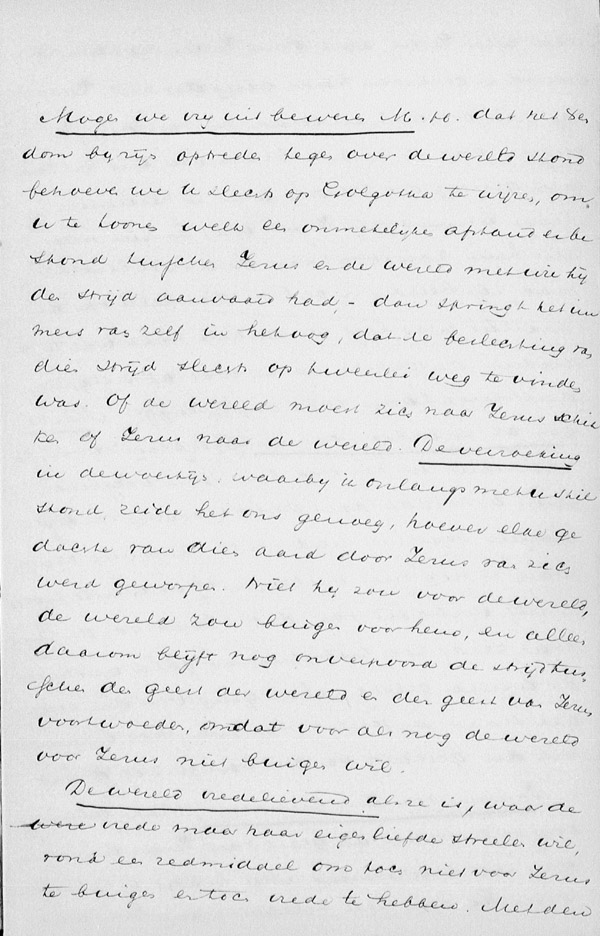 Mogen we vrij uit beweren M. H. dat het
dom bij zijn optreden tegen over de wereld stond
behoeven we U slechts op Golgotha te wijzen, om
U te toonen welk een onmetelijke afstand er be
stond tusschen Jezus en de wereld met wie hij
den strijd aanvaard had, - dan springt het im
mers van zelf in het oog, dat de beslechting van
dien strijd slechts op tweeërlei weg te vinden
was. Of de wereld moest zich naar Jezus schik
ken of Jezus naar de wereld. De verzoeking
in de woestijn, waarbij ik onlangs met U stil
stond, zeide het ons genoeg, hoever elke ge
dachte van dien aard door Jezus van zich
werd geworpen. Niet hij zou voor de wereld,
de wereld zou buigen voor hem, en alleen
daarom blijft nog onverpoosd de strijd tus
schen den geest der wereld en den geest van Jezus
voortwoeden, omdat voor als nog de wereld
voor Jezus niet buigen wil.
De wereld vredelievend als ze is, waar de
vrede maar haar eigenliefde streelen wil,
vond een redmiddel om toch niet voor Jezus
te buigen en toch vrede te hebben. Met den